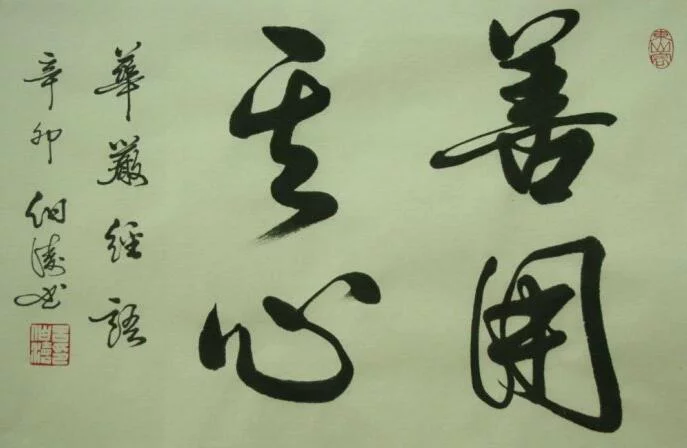 善用
其心
華嚴經語
辛卯